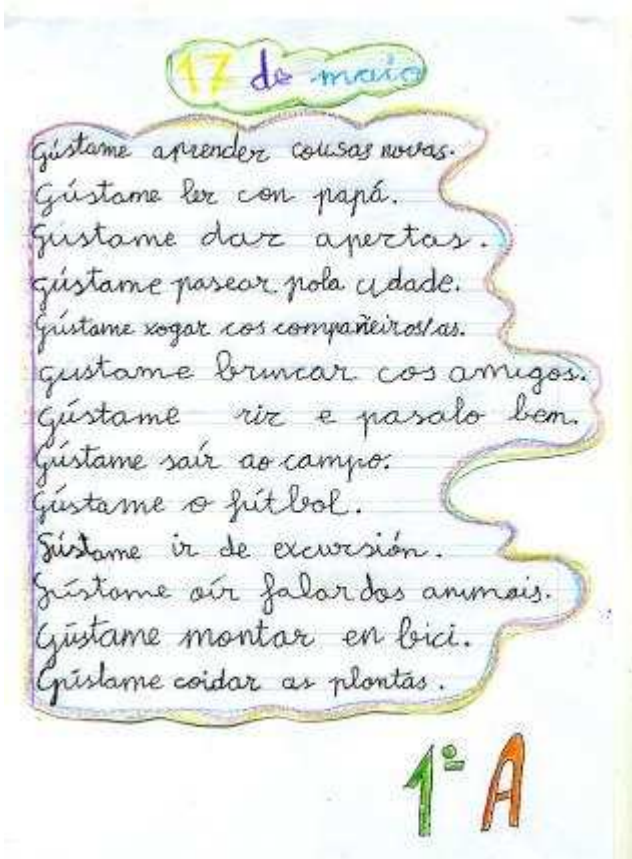 17 de maio
Gústame aprender cousas novas.
Gústame ler con papá.
Gústame dar apertas.
Gústame pasear pola cidade.
Gústame xogar cos compañeiros/as.
Gustame brincar cos amigos.
Gústame rir e pasalo bem.
Gústame saír ao campo.
Gústame o fútbol.
Gústame ir de excursión.
Gústame oír falar dos animais.
Gústame montar en bici.
Gústame coidar as plantas.
1º A